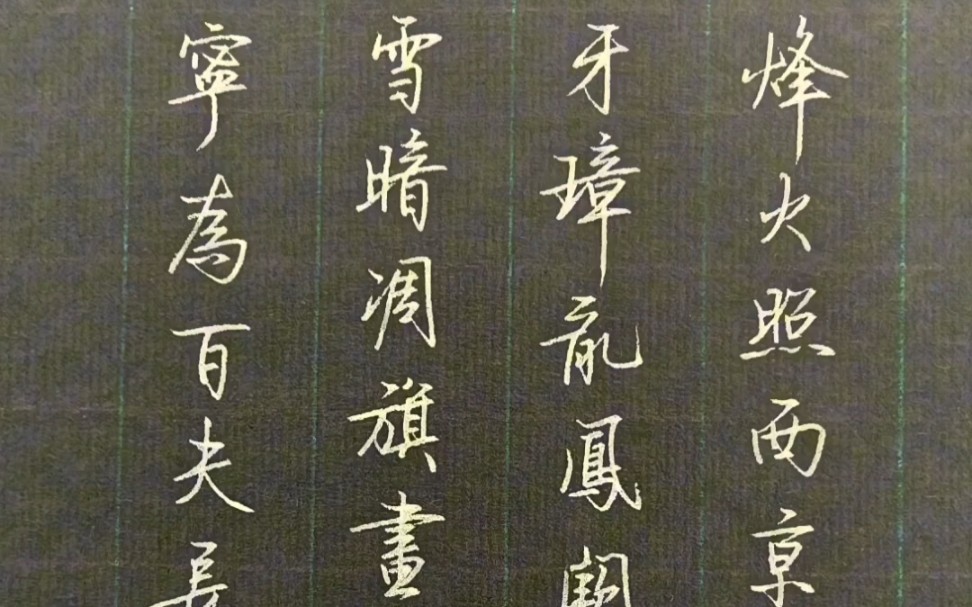 烽火照西京
牙璋龍鳳闕
雪暗凋旗畫
寧為百夫長